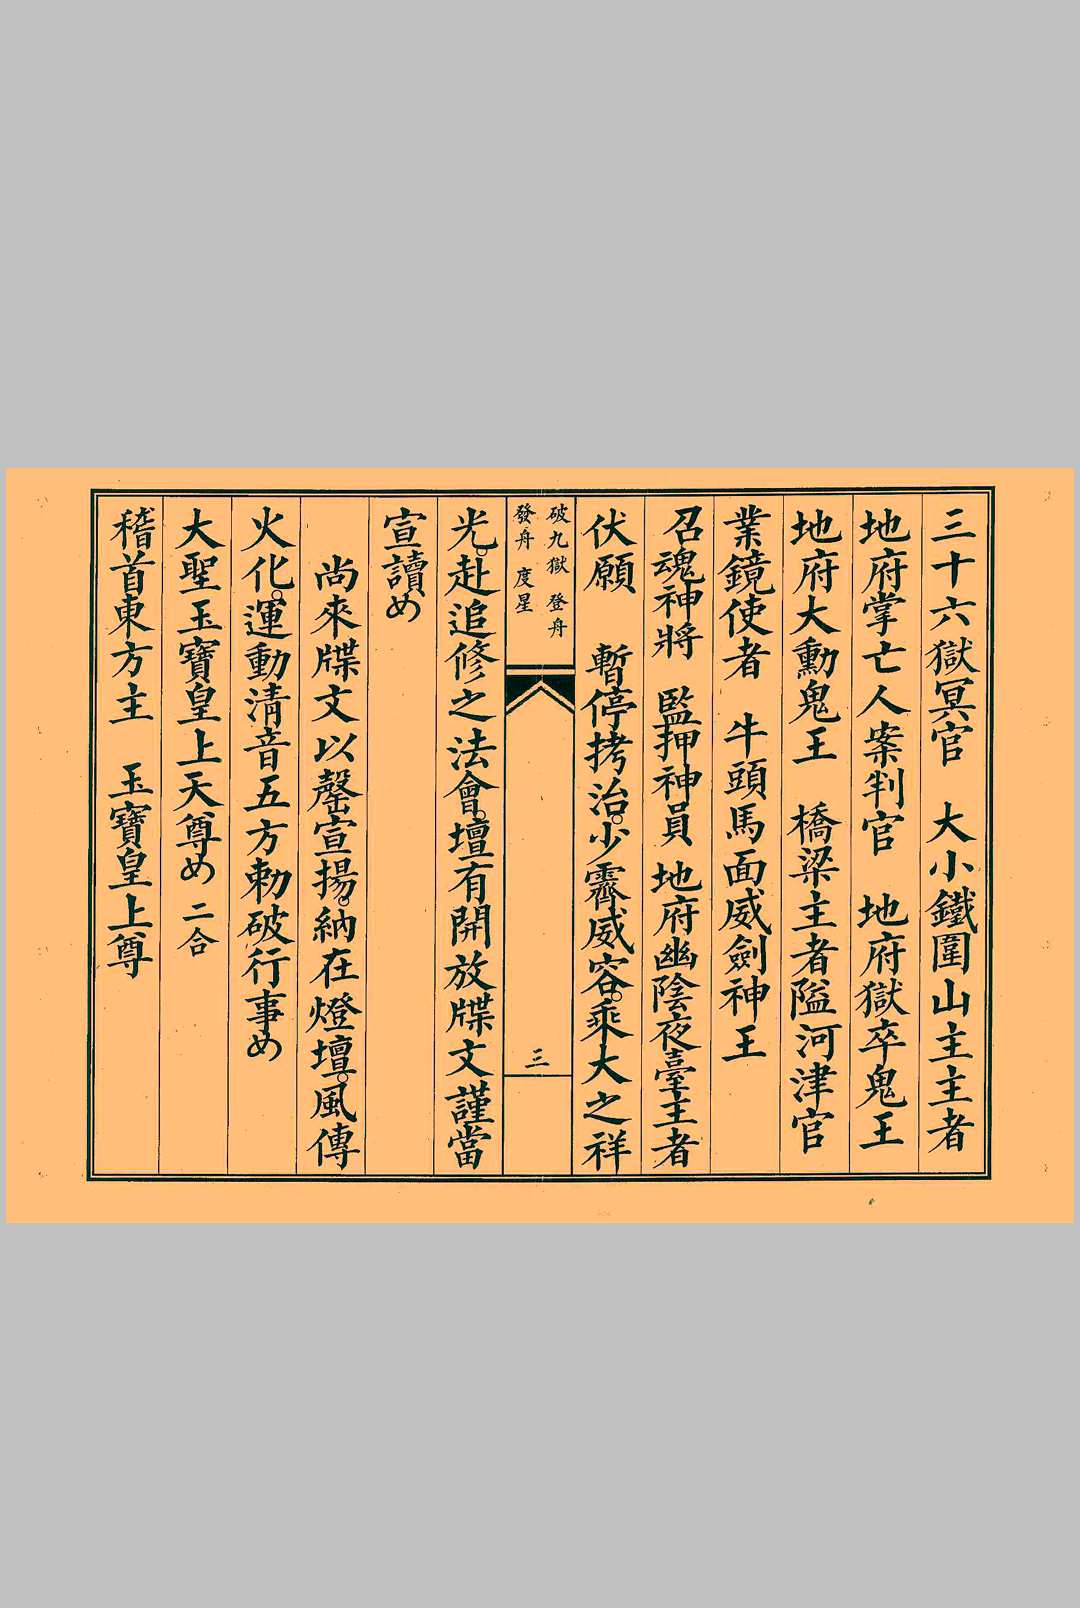 三十六獄冥官　大小鐵圍山主主者
地府掌亡人案判官　地府獄卒鬼王
地府大勳鬼王　橋梁主者隘河津官
業鏡使者　牛頭馬面威劍神王
召魂神將　監押神員　地府幽陰夜臺主者
伏願　暫停拷治。少霽威容。乘大之祥
破九獄　登舟
發舟　度星
三
光。赴追修之法會。壇有開放牒文謹當
宣讀め
尚來牒文以罄宣揚。納在燈壇。風傳
火化。運動清音五方勅破行事め
大聖玉寶皇上天尊め　二合
稽首東方主　玉寶皇上尊